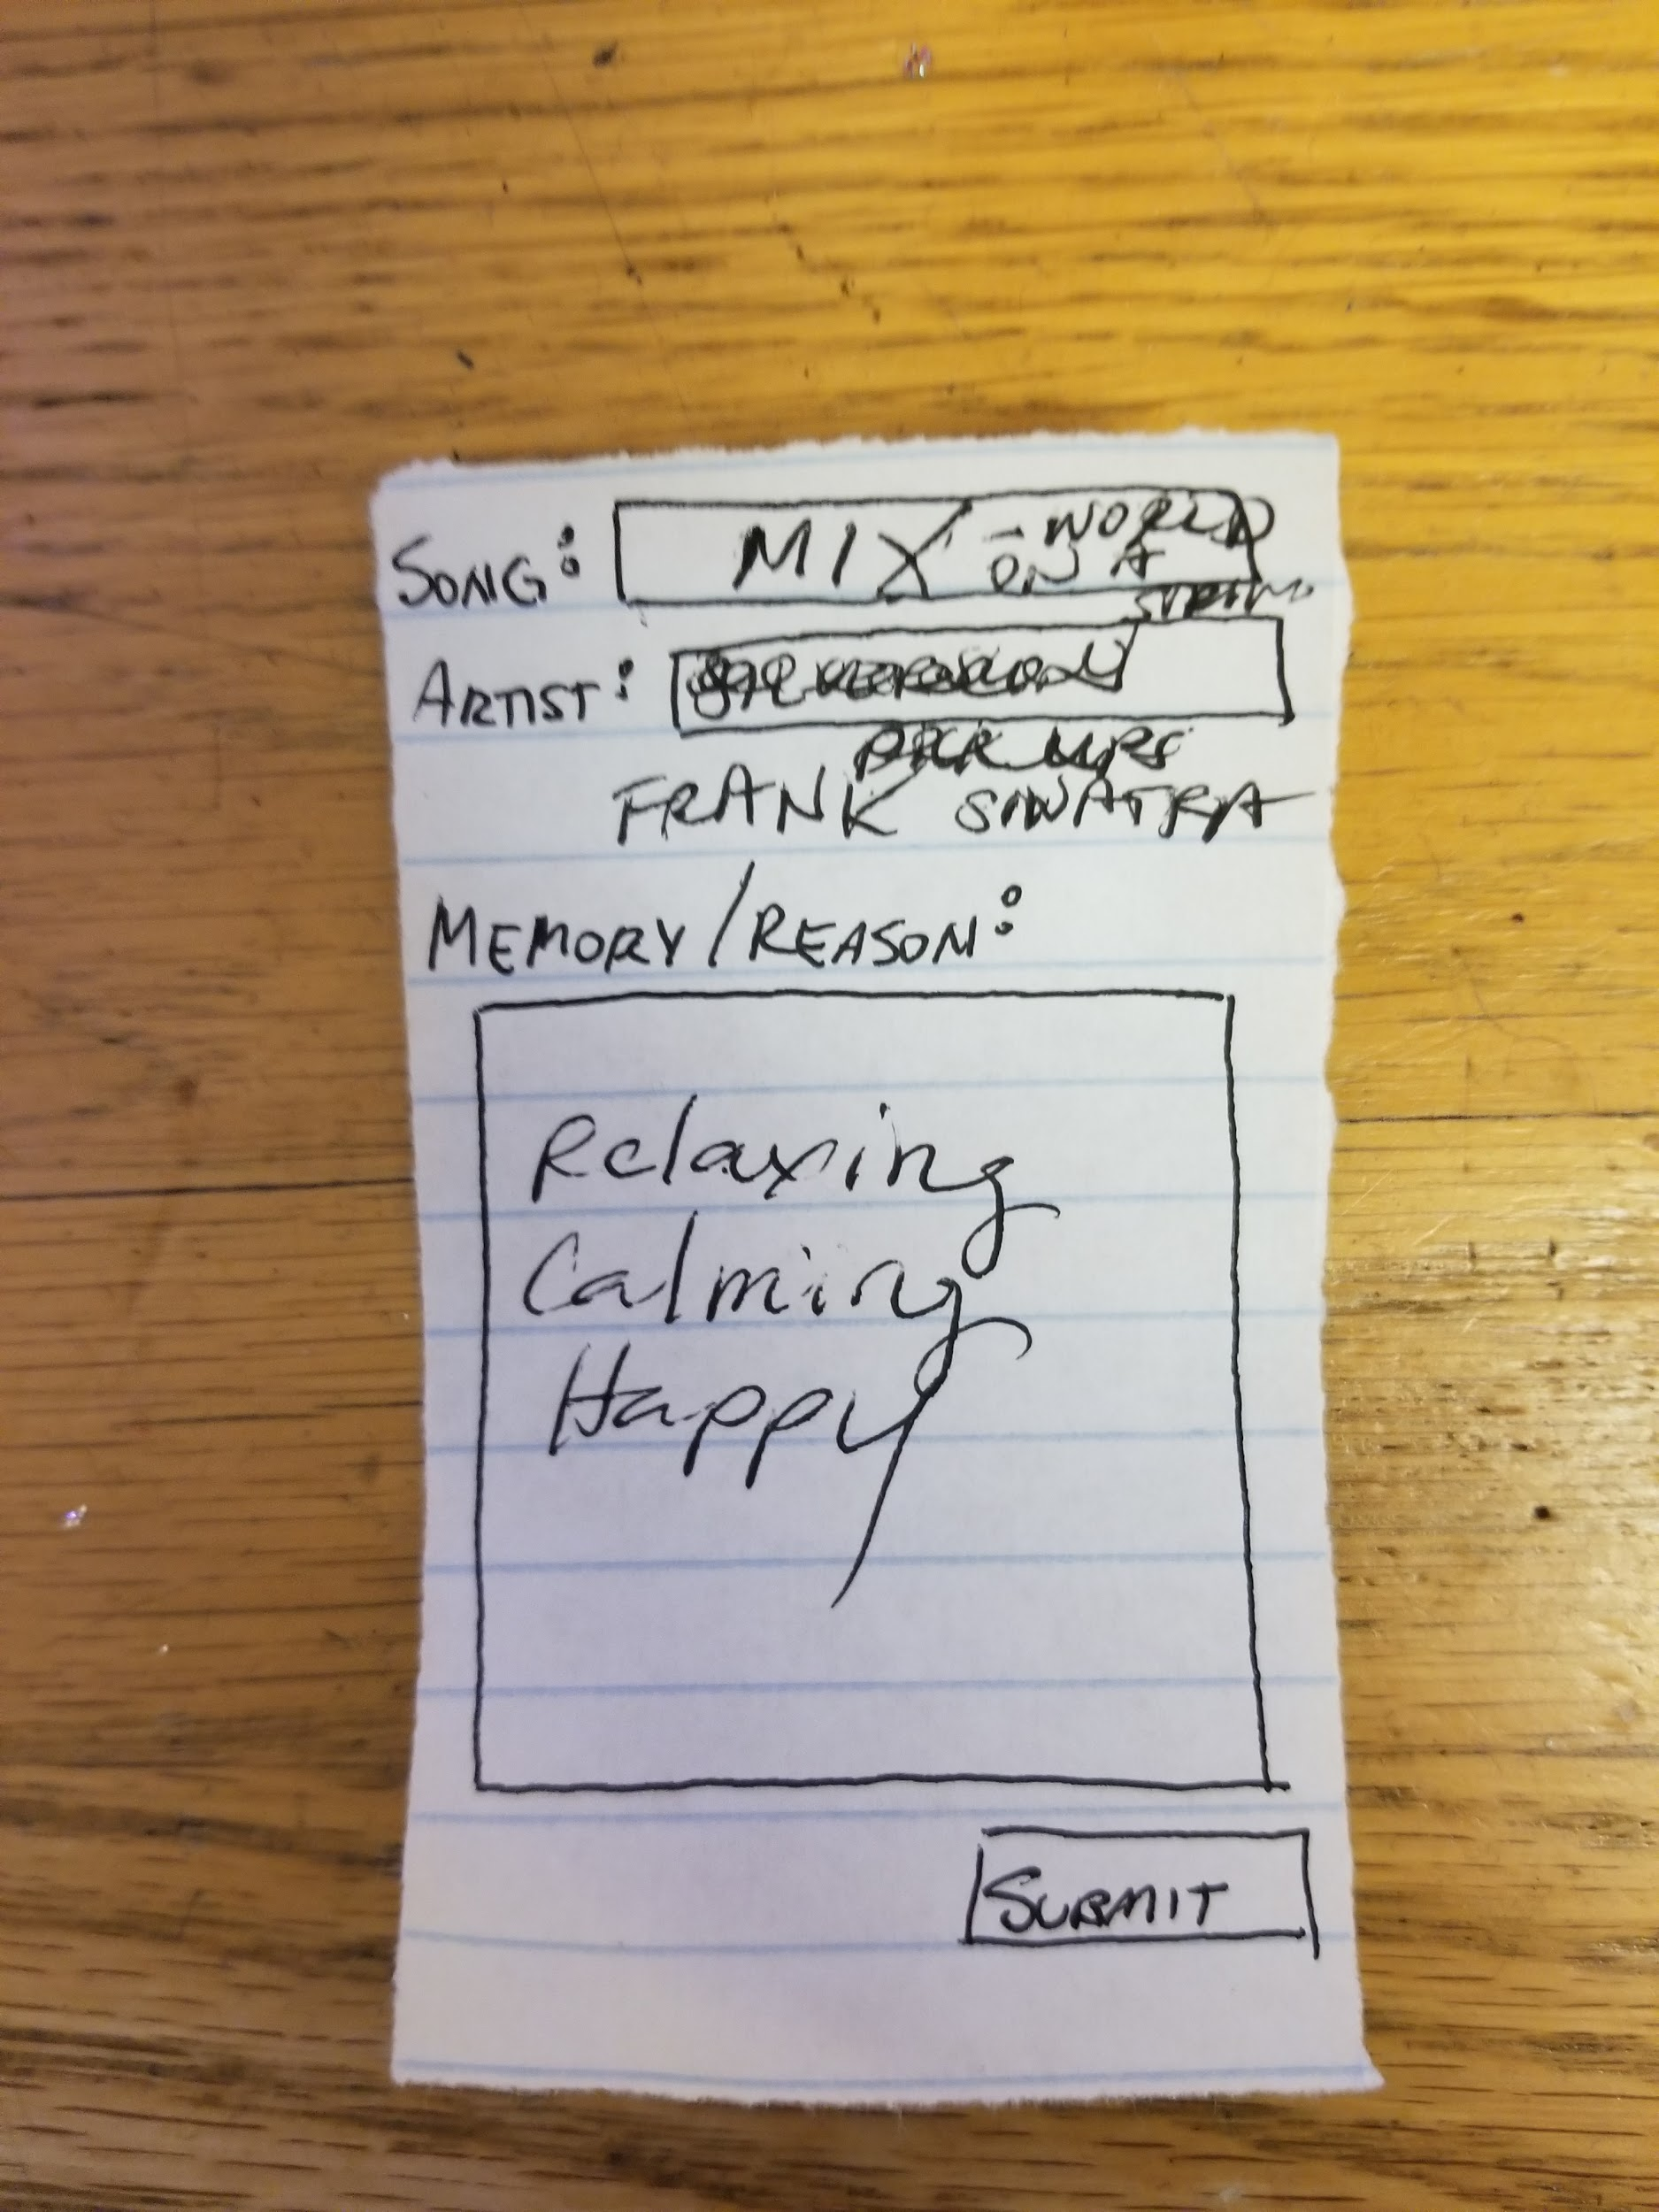 SONG: MIX - WORLD
ON A
STRING
ARTIST:
FRANK SINATRA
MEMORY/REASON:
Relaxing
Calming
Happy
SUBMIT